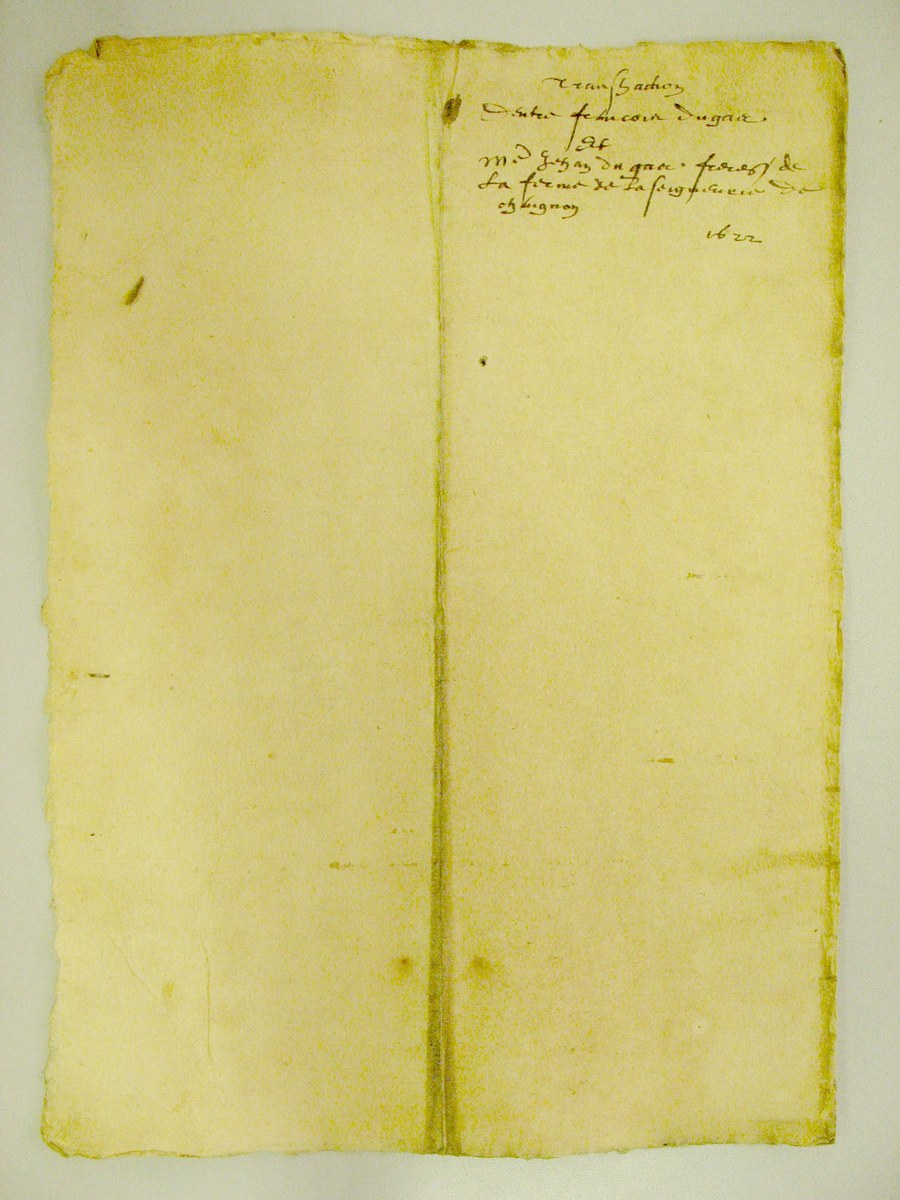 Transhaction
dentre francois dugar
Et
Me Jehan dugar freres de
La ferme de la seigneurie de
chaignon
1622